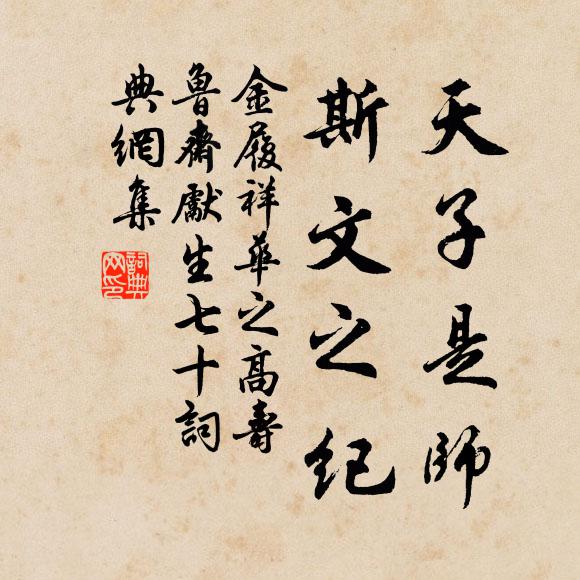 天子是師
斯文之紀
金履祥華之高壽
魯齋獻生七十詞
典網集
詞典网印